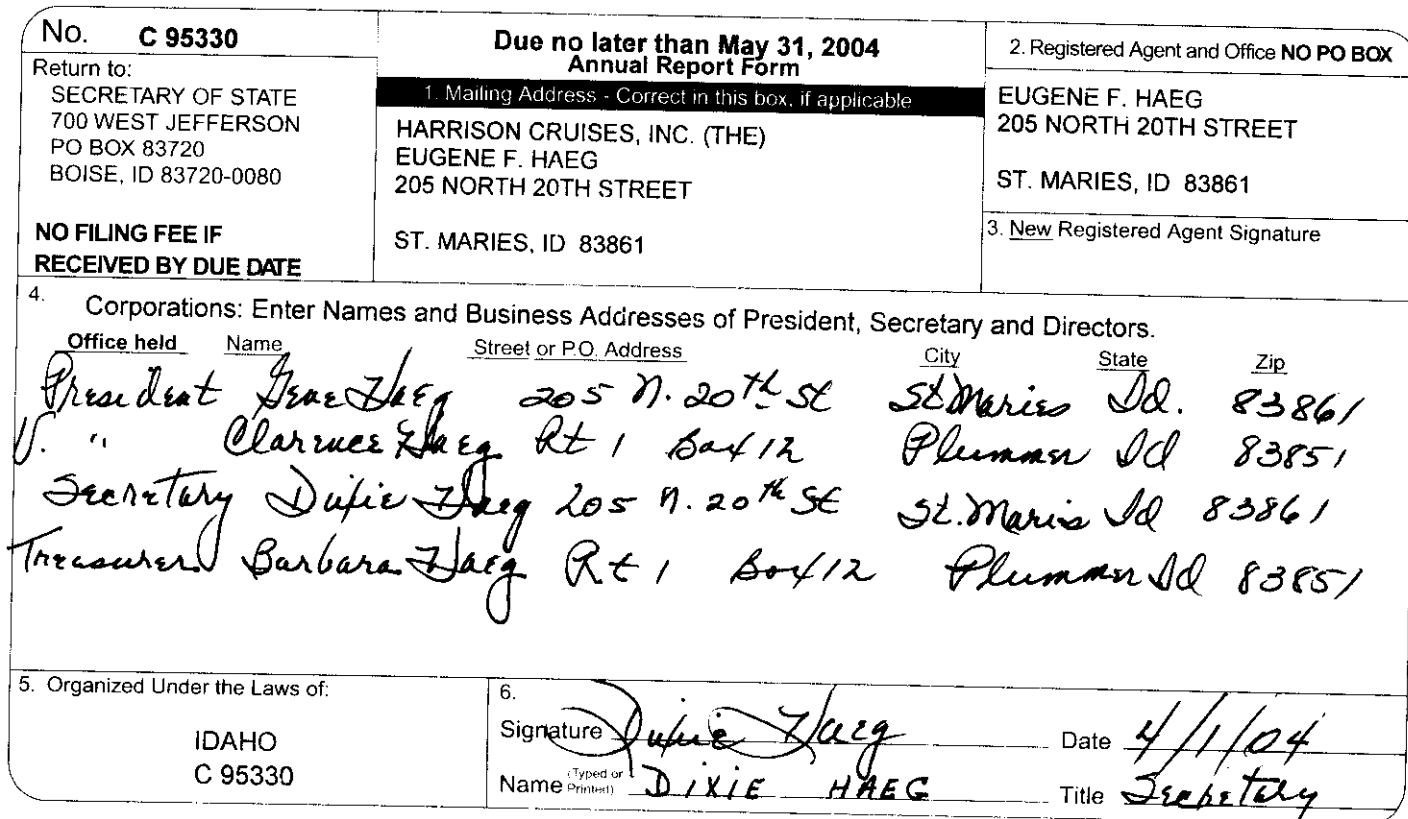 No. C 95330
Return to:
SECRETARY OF STATE
700 WEST JEFFERSON
PO BOX 83720
BOISE, ID 83720-0080
NO FILING FEE IF
RECEIVED BY DUE DATE
Due no later than May 31, 2004
Annual Report Form
1. Mailing Address - Correct in this box, if applicable
HARRISON CRUISES, INC. (THE)
EUGENE F. HAEG
205 NORTH 20TH STREET
ST. MARIES, ID 83861
2. Registered Agent and Office NO PO BOX
EUGENE F. HAEG
205 NORTH 20TH STREET
ST. MARIES, ID 83861
3. New Registered Agent Signature
4. Corporations: Enter Names and Business Addresses of President, Secretary and Directors.
Office held Name Street or P.O. Address City State Zip
President Gene Haeg 205 N. 20th St St Maries Id. 83861
V. " Clarence Haeg Rt 1 Box 12 Plummer Id 83851
Secretary Dixie Haeg 205 N. 20th St St. Maries Id 83861
Treasurer Barbara Haeg Rt 1 Box 12 Plummer Id 83851
5. Organized Under the Laws of:
IDAHO
C 95330
6.
Signature Dixie Haeg Date 4/1/04
Name (Typed or Printed) DIXIE HAEG Title Secretary